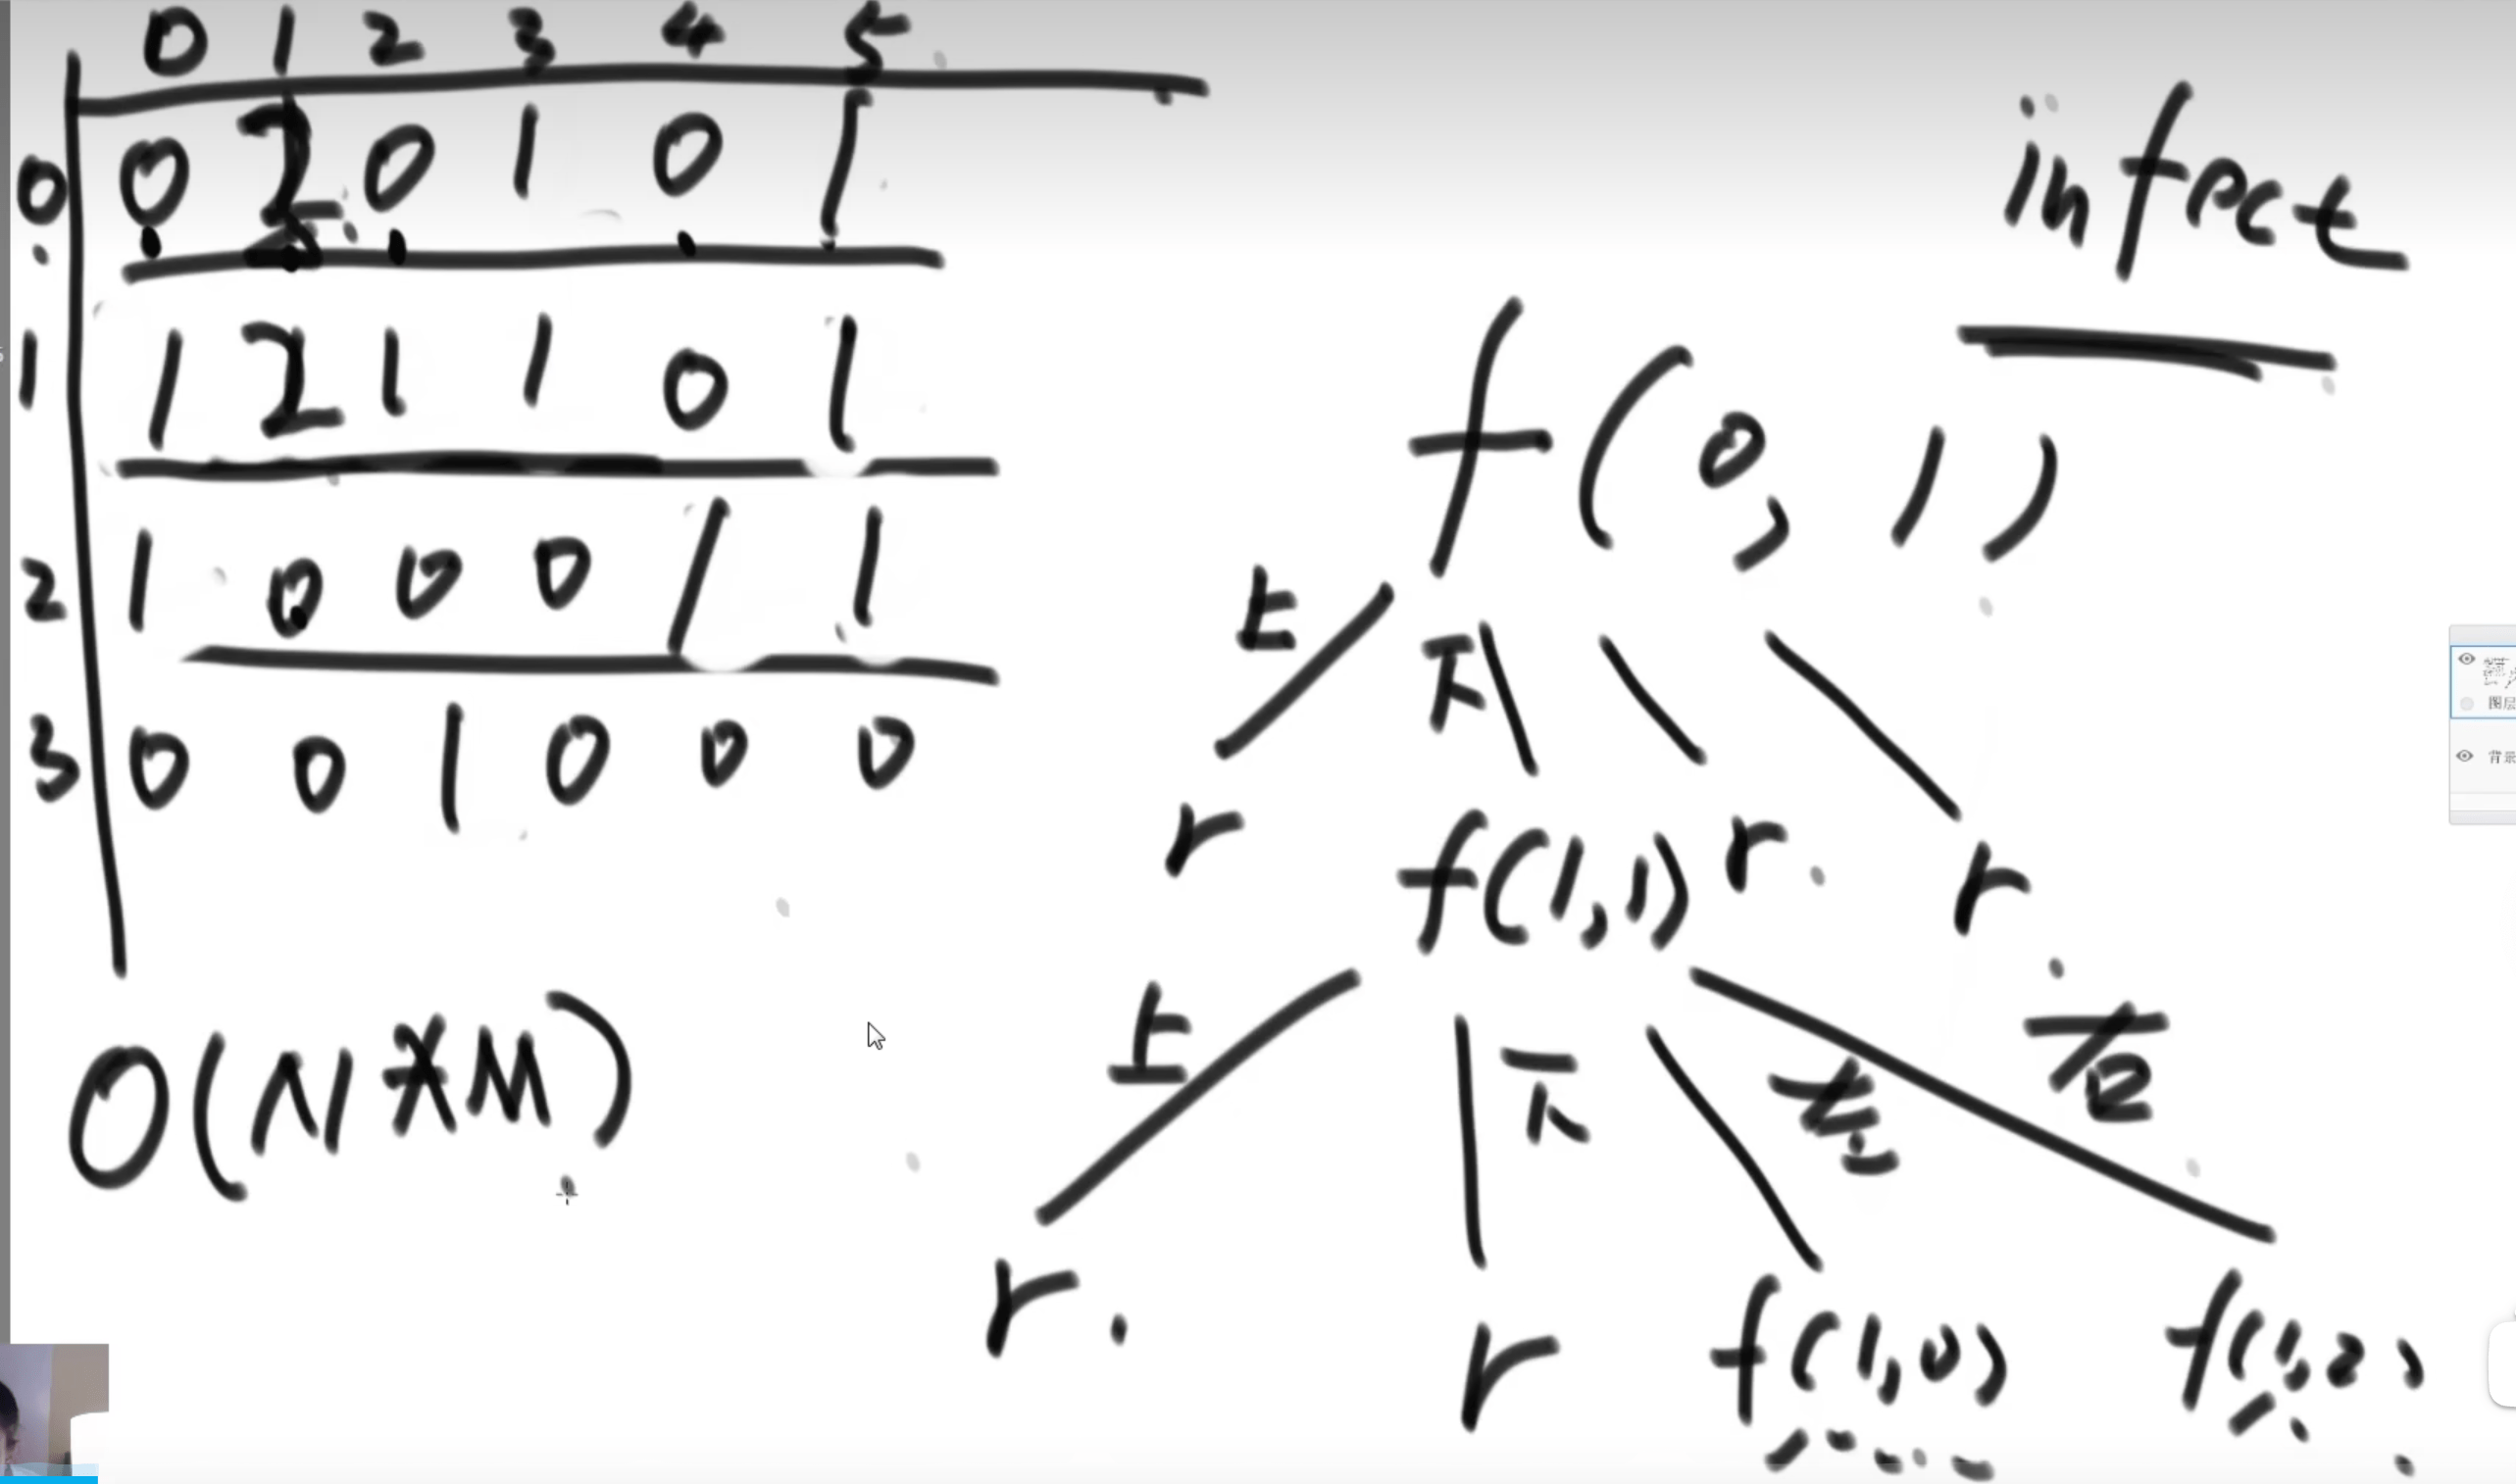 0 1 2 3 4 5
0 0 2 0 1 0 1
1 1 2 1 1 0 1
2 1 0 0 0 1 1
3 0 0 1 0 0 0
O(N*M)
infect
f(0,1)
上 下
r f(1,1) r. r.
上 下 左 右
r. r f(1,0) f(1,2)
图层
背景